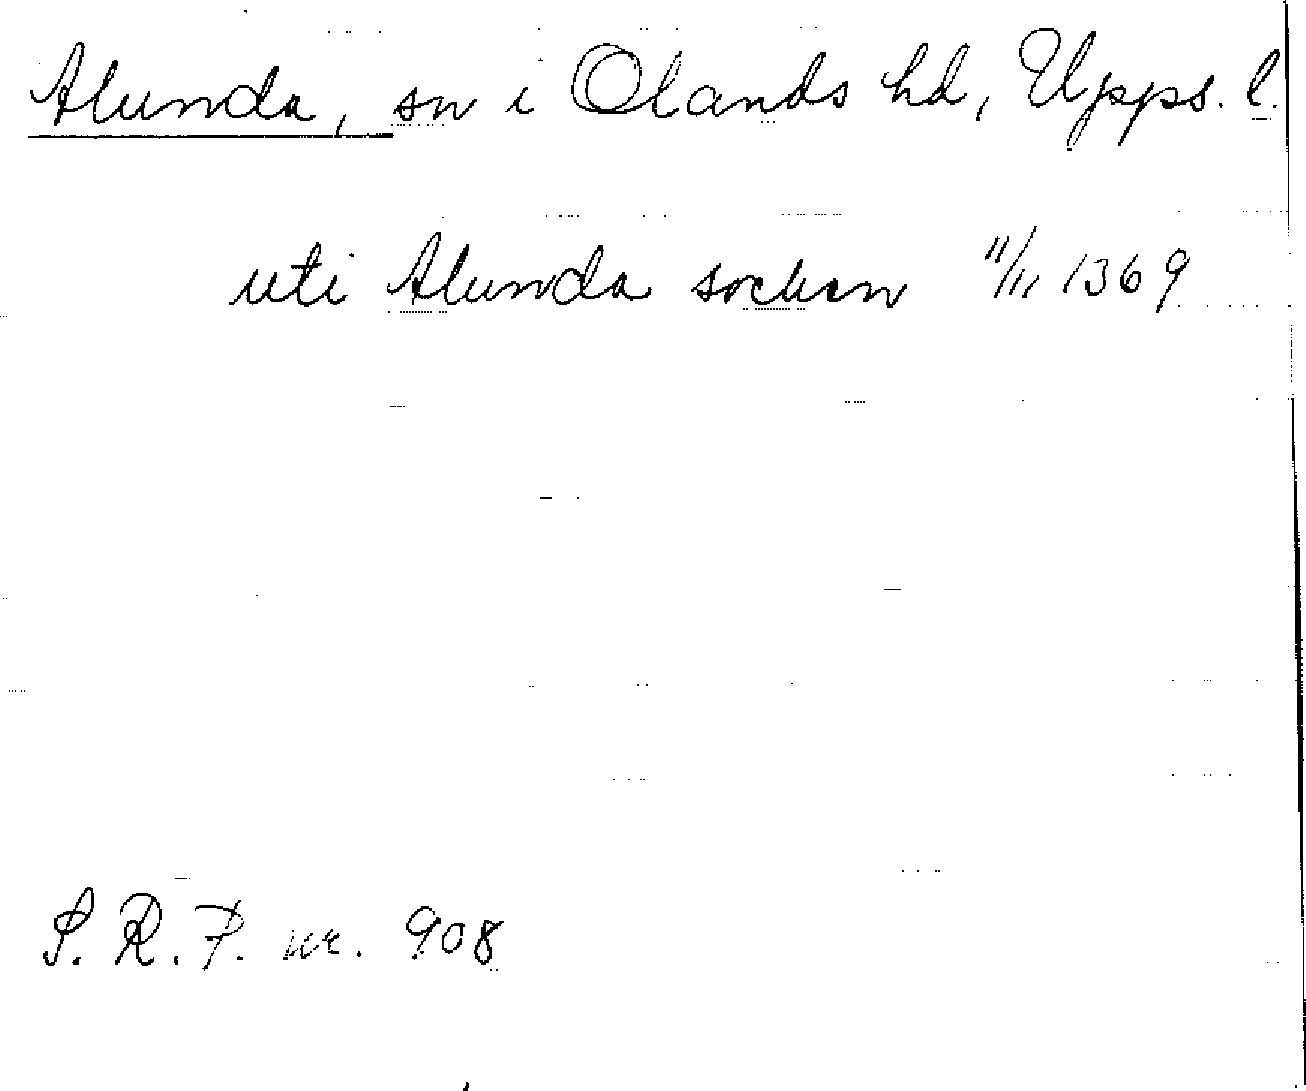 Alunda, sn i Olands hd, Upps. l.
uti Alunda sockn 11/11 1369
S. R. P. nr. 908